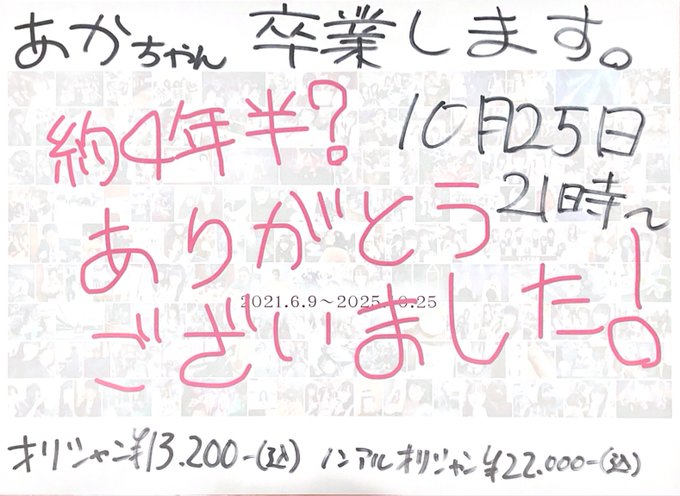 あかちゃん 卒業します。
約4年半? 10月25日
21時〜
ありがとう
2021.6.9～2025.10.25
ございました!
オリシャン¥13.200-(込) ノンアルオリシャン¥22.000-(込)